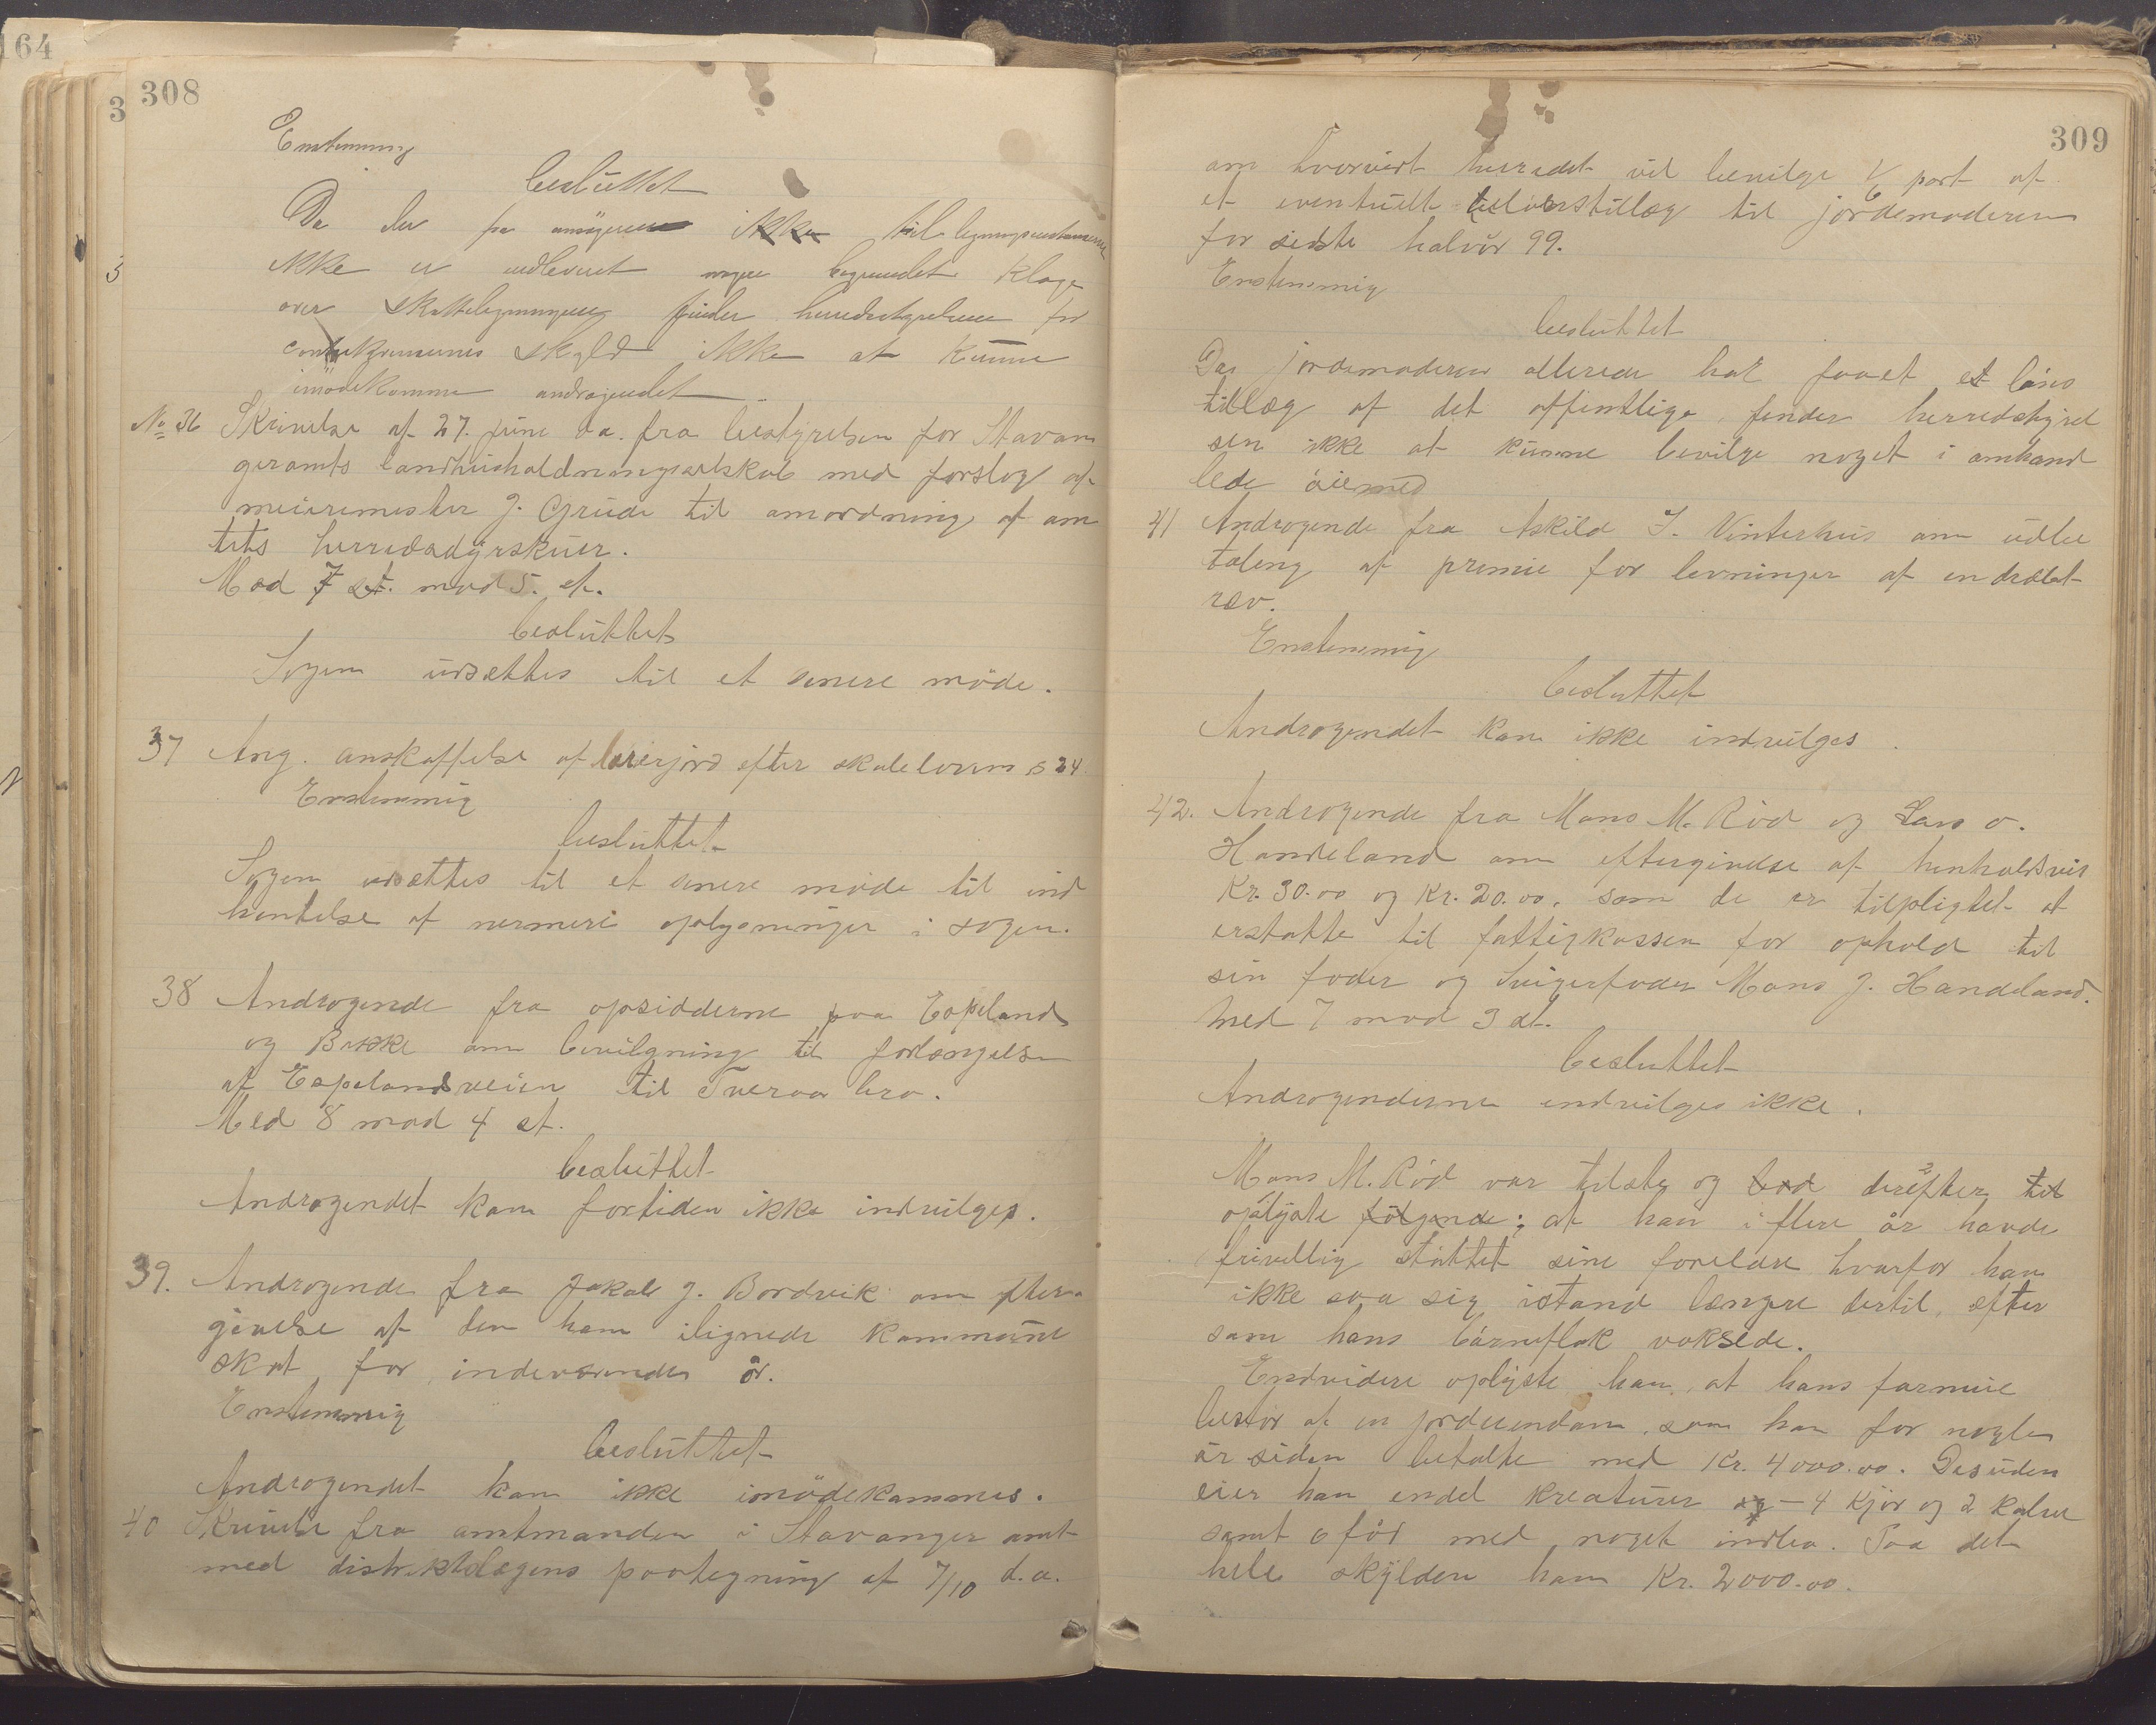 164
308
3
Enstemmig
besluttet
Da der fra ansøgeren ikke til ligningskommissionen
ikke er indleveret nogen begrundet klage
3
over skatteligningen finder herredsstyrelsen for
conseqvensernes skyld ikke at kunne
imødekomme andragendet.
No 36 Skrivelse af 27. june d.a. fra bestyrelsen for Stavan
geramts landhusholdningsselskab med forslag af
meieremester J. Grude til anordning af am
tets herredsdyrskuer.
Med 7 st. mod 5. st.
besluttet
Sagen udsættes til et senere møde.
37 Ang. anskaffelse af lærerjord efter skoleloven § 24
Enstemmig
besluttet
Sagen udsættes til et senere møde til ind
hentelse af nermere oplysninger i sagen.
38 Andragende fra opsidderne paa Espeland
og Brekke om bevilgning til forlængelse
af Espelandsveien til Tveraa bro.
Med 8 mod 4 st.
besluttet
Andragendet kan fortiden ikke indvilges.
39. Andragende fra Jakob J. Bordvik om efter-
givelse af den ham ilignede kommune
skat for indeværende år.
Enstemmig
besluttet
Andragendet kan ikke imødekommes.
40 Skrivelse fra amtmanden i Stavanger amt
med distriktslægens paategning af 7/10 d.a.
309
om hvorvidt herredet vil bevilge 1/6 part af
et eventuelt tillønstillæg til jordemoderen
for sidste halvår 99.
Enstemmig
besluttet
Da jordemoderen allerede har faaet et løns
tillæg af det offentlige, finder herredsstyrel
sen ikke at kunne bevilge noget i omhand
lede øiemed
41 Andragende fra Askild I. Vinterhus om udbe
taling af premie for levninger af en dræbt
ræv.
Enstemmig
besluttet
Andragendet kan ikke indvilges.
42. Andragende fra Mons M. Rød og Lars O.
Handeland om eftergivelse af henholdsvis
Kr. 30.00 og Kr. 20.00, som de er tilpligtet at
erstatte til fattigkassen for ophold til
sin fader og Svigerfader Mons J. Handeland.
Med 7 mod 3 st.
besluttet
Andragenderne indvilges ikke.
Mons M. Rød var tilstede og bad derefter til
oplyste følgende; at han i flere år havde
frivillig støttet sine forældre hvorfor han
ikke saa sig istand længere dertil, efter
som hans børneflok voksede.
Endvidere oplyste han, at hans formue
består af en jordeiendom, som han for nogle
år siden betalte med Kr. 4000.00. Desuden
eier han endel kreaturer og – 4 kjør og 2 kalve
samt 6 får med noget indbo. Paa det
hele skylder han Kr. 2000.00.